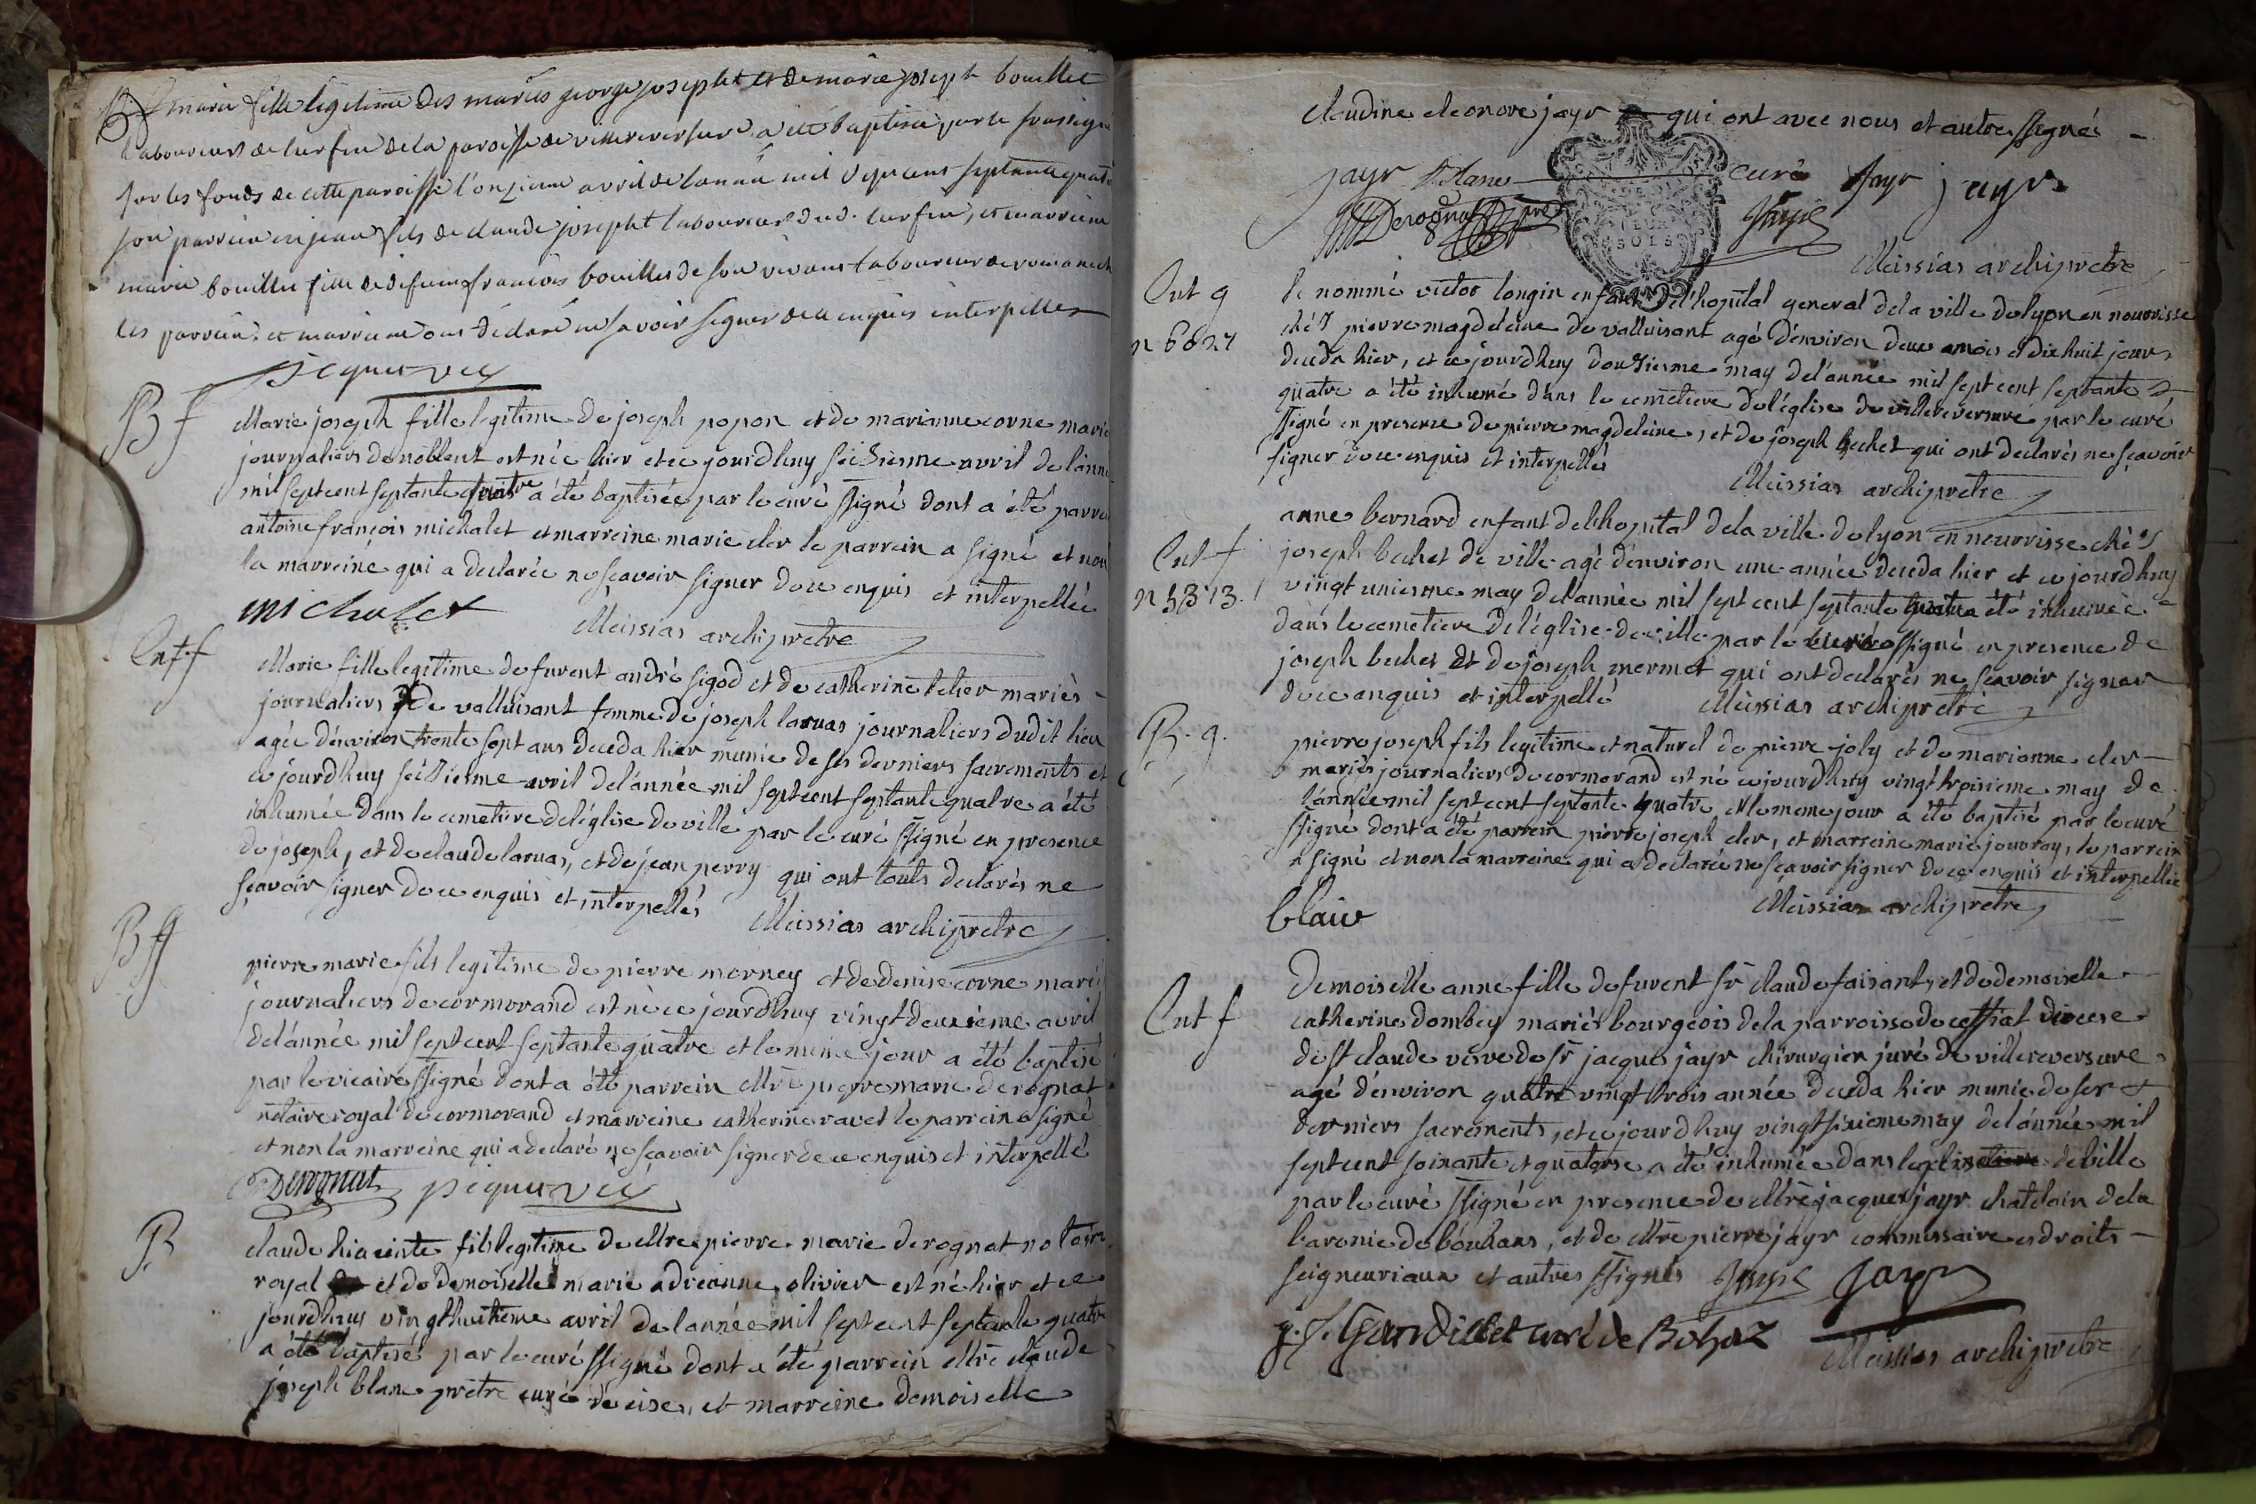 B f marie fille legitime des mariés george josepht et de marie joseph bouillet
laboureurs de lurfin de la paroisse de villereversure a été baptisée par le soussigné
sur les fonds de cette paroisse l'onzieme avril de l'année mil sept cent septante quatre
son parrein en jean fils de claude josepht laboureur dud. lurfin, et marreine
marie bouillet fille de defunt francois bouillet de son vivant laboureur de romaneche
les parrein et marreine ont déclaré ne savoir signer de ce enquis interpellés
pequevez
B f
Marie joseph fille legitime de joseph popon et de marianne corne mariés
journaliers de noblent est née hier et ce jourdhuy seizieme avril de l'année
mil sept cent septante quatre a été baptisée par le curé ssigné dont a été parrein
antoine françois michalet et marreine marie cler le parrein a signé et non
la marreine qui a declarée ne scavoir signer de ce enquis et interpellée
michalet
Meissias archipretre
Ent f
Marie fille legitime de fuvent andré sigod et de catherine telier mariès
journaliers de valluisant femme de joseph laruas journaliers dudit lieu
agée d'environ trente sept ans deceda hier munie de ses derniers sacrements et
ce jourdhuy seizieme avril de l'année mil sept cent septante quatre a été
inhumée dans le cemetiere de l'église de ville par le curé ssigné en presence
de joseph, et de claude laruas, et de jean perry qui ont touts declarés ne
sçavoir signer de ce enquis et interpellés
Meissias archiprêtre
B g
pierre marie fils legitime de pierre morney et de denise corne mariés
journaliers de cormorand est né ce jourdhuy vingt deuxième avril
de l'année mil sept cent septante quatre et le meme jour a été baptisé
par le vicaire ssigné dont a été parrein Mtre pierre marie derognat
notaire royal de cormorand et marreine catherine ravet le parrein a signé
et non la marreine qui a declaré ne sçavoir signer de ce enquis et interpellé
Derognat pequevez
B
claude hiacinte fils legitime de Mtre pierre marie derognat notaire
royal et de demoiselle marie adrianne olivier est né hier et ce
jourdhuy vingthuitieme avril de l'année mil sept cent septante quatre
a été baptisé par le curé ssigné dont a été parrein Mtre claude
joseph blanc prêtre curé de cise, et marreine demoiselle
claudine eleonore jayr qui ont avec nous et autres ssignés
jayr Blanc curé Jayr jayr
Derognat Jayr
Meissias archiprêtre
Ent g
n 6827
le nommé victor longin enfant de l'hopital general de la ville de lyon en nourrisse
chés pierre magdeleine de valluisant agé d'environ deux mois et dix huit jours
deceda hier, et ce jourdhuy douziesme may de l'année mil sept cent septante
quatre a été inhumé dans le cemetiere de l'église de villereversure par le curé
ssigné en presence de pierre magdeleine, et de joseph bechet qui ont declarés ne scavoir
signer de ce enquis et interpellés
Meissias archiprêtre
Ent f
n 5313.
anne bernard enfant de l'hopital de la ville de lyon en nourrisse chés
joseph bechet de ville agé d'environ une année deceda hier et ce jourdhuy
vingt uniesme may de l'année mil sept cent septante quatre a été inhumée
dans le cemetiere de l'église de ville par le curé ssigné en presence de
joseph bechet et de joseph mermet qui ont declarés ne scavoir signer
de ce enquis et interpellé
Meissias archiprêtré
B. g.
pierre joseph fils legitime et naturel de pierre joly et de marianne cler
mariés journaliers de cormorand est né ce jourdhuy vingt troisieme may de
l'année mil sept cent septante quatre et le meme jour a été baptisé par le curé
ssigné dont a été parrein pierre joseph cler, et marreine marie jouvray, le parrein
a signé et non la marreine qui a declarée ne scavoir signer de ce enquis et interpellée
Claiv
Meissias archiprêtre
Ent f
Demoiselle anne fille de fuvent Sr claude faisant, et de demoiselle
catherine dombey mariés bourgeois de la parroisse de cessiat diocese
de St claude veve de Sr jacques jayr chirurgien juré de villereversure
agé d'environ quatre vingt trois année deceda hier munie de ses
derniers sacrements, et ce jourdhuy vingt sixieme may de l'année mil
sept cent soixante et quatorse a été inhumée dans l'eglise de ville
par le curé ssigné en presence de Mtre jacques jayr chatelain de la
baronie de bouhans, et de Mtre pierre jayr commissaire es droits
seigneuriaux et autres ssignés Jayr Jayr
g. J. Gandillet curé de Bohaz
Meissias archiprêtre